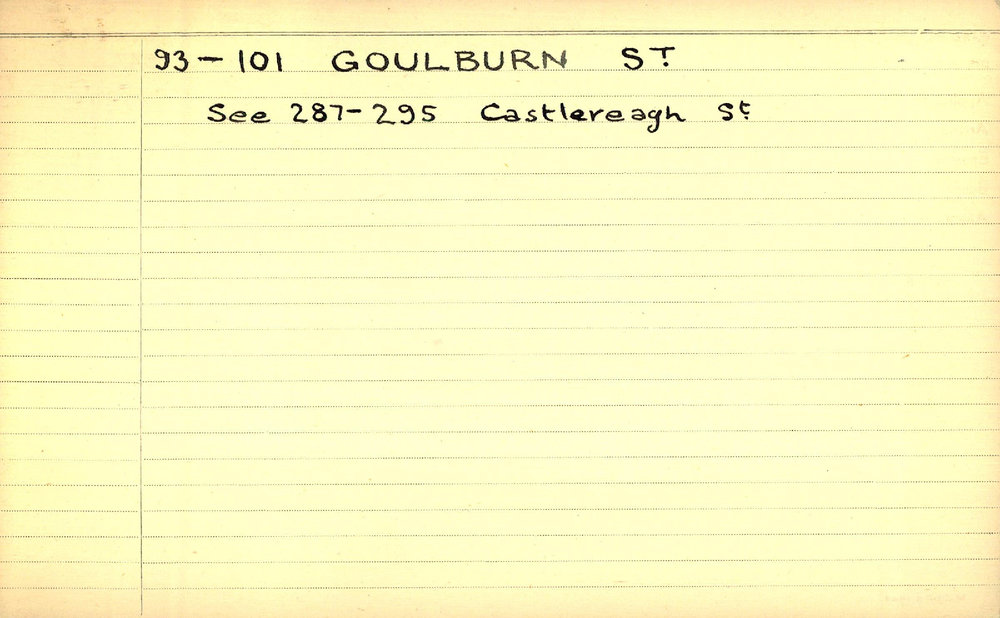 93-101 GOULBURN ST
See 287-295 Castlereagh St